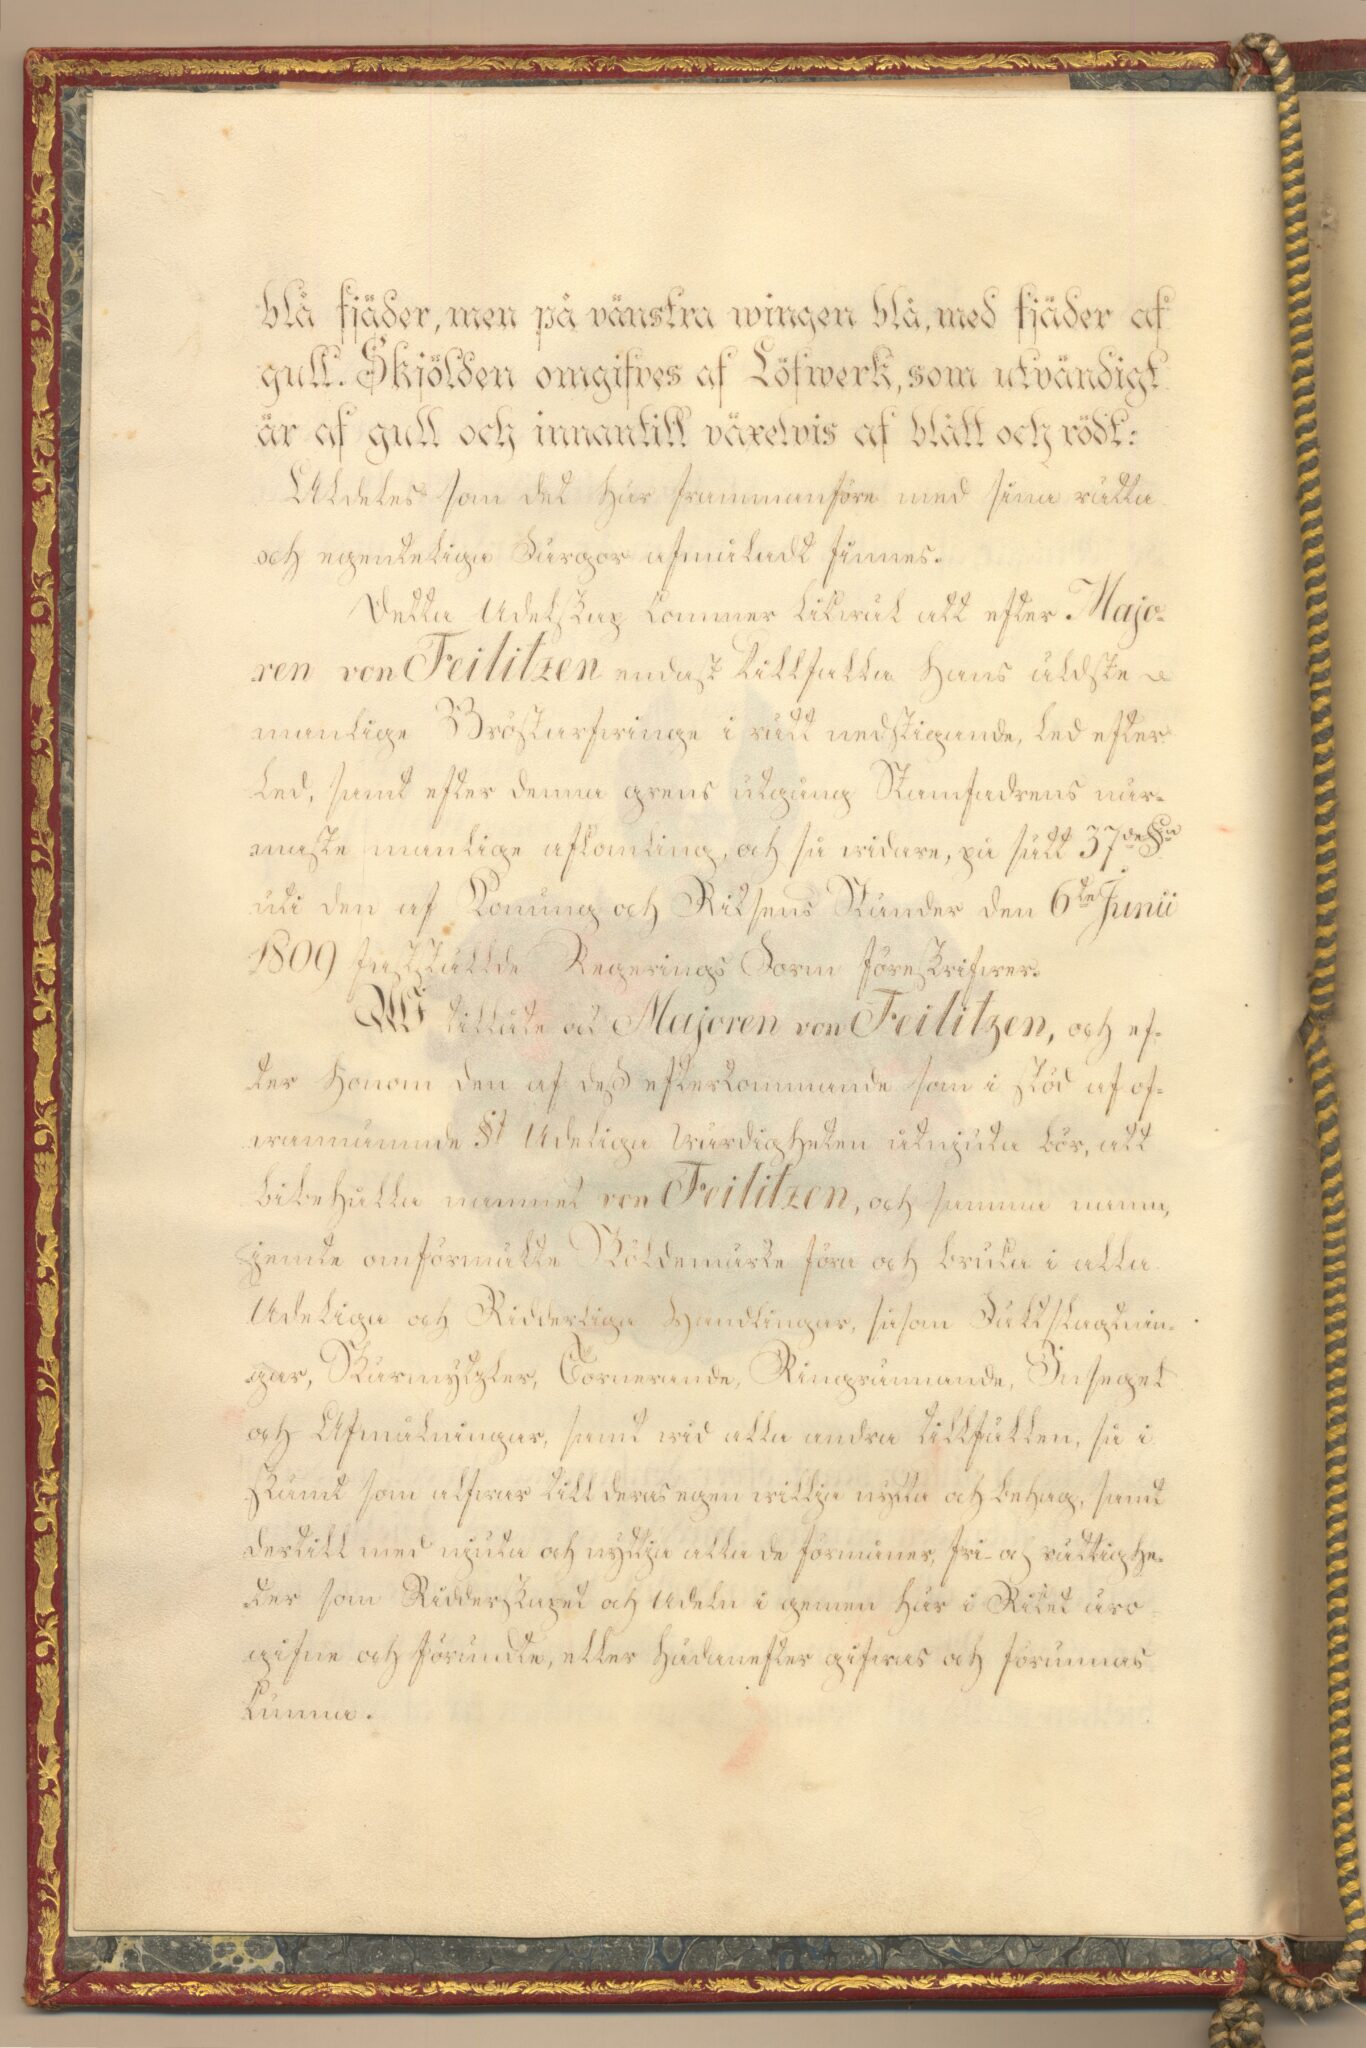 blå fjäder, men på vänstra wingen blå, med fjäder af
gull. Skjölden omgifves af Löfwerk, som utvändigt
är af gull och innantill växelvis af blått och rödt:
Aldeles som det här frammanföre med sina rätta
och egenteliga Färgor afmåladt finnes.
Detta Adelskap kommer likwäl att efter Majo-
ren von Feilitzen endast tillfalla Hans äldste
manlige Bröstarfwinge i rätt nedstigande, led efter
led, samt efter denna grens utgång Stamfadrens när-
maste manlige afkomling, och så widare, på sätt 37de §n
uti den af Konung och Riksens Ständer den 6te Junii
1809 faststälde Regerings Form föreskrifwer.
Wi tillåte ock Majoren von Feilitzen, och ef-
ter honom den af deß efterkommande som i stöd af of-
wannämnde §t Adeliga wärdigheten åtnjuta bör, att
bibehålla namnet von Feilitzen, och samma namn,
jemte omförmälte Sköldemärke föra och bruka i alla
Adeliga och Ridderliga Handlingar, såsom Fältslagtnin-
gar, Skärmytzler, Tornerande, Ringrännande, Insegel
och Afmålningar, samt wid alla andra tillfällen, så i
skämt som alfwar till deras egen willja nytta och behag, samt
dertill med njuta och nyttja alla de förmåner, fri- och rättighe-
ter som Ridderskapet och Adeln i gemen här i Riket äro
gifne och förundte, eller hädanefter gifwas och förunnas
kunna.